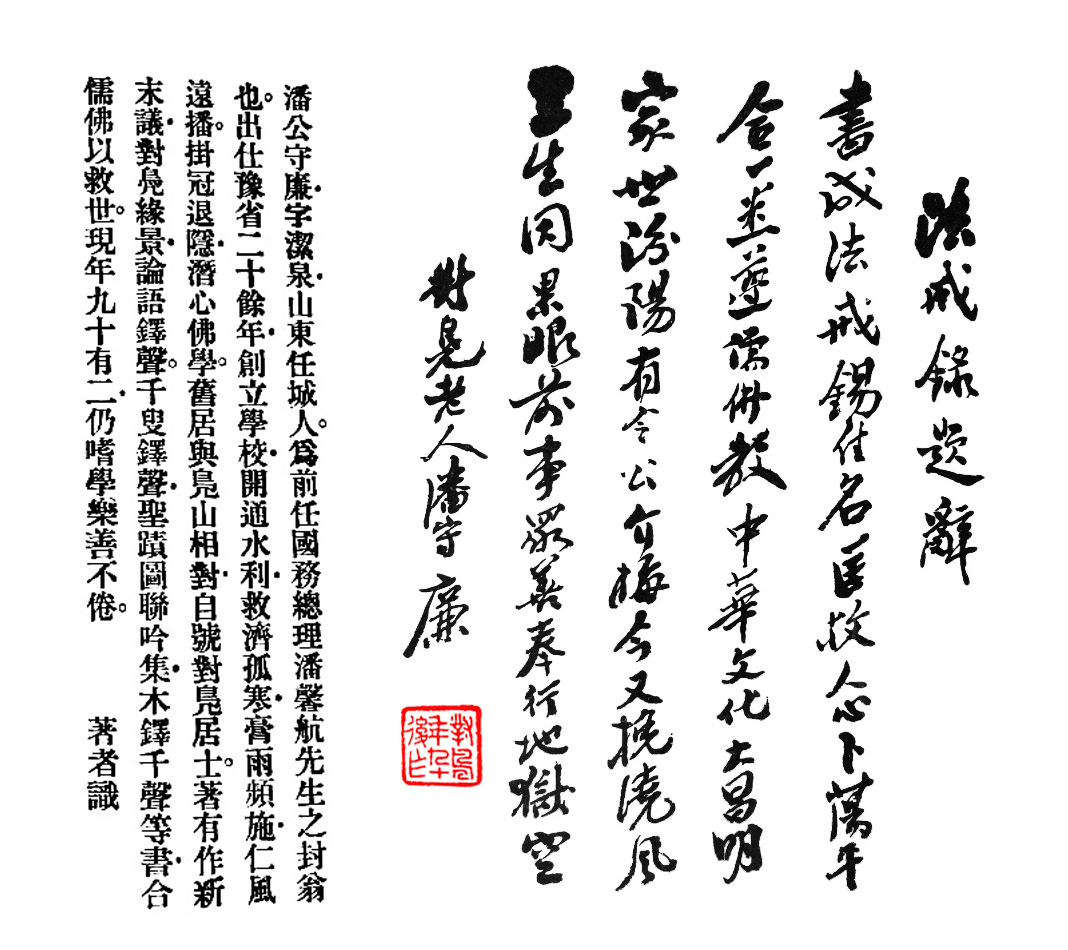 法戒錄題辭
書成法戒錫佳名匡救人心卜蕩平
合一並遵儒佛教中華文化大昌明
家世汾陽有令公介梅今又挽澆風
三生因果眼前事眾善奉行地獄空
對鳧老人潘守廉
對鳧
年九十
後作
潘公守廉・字潔泉・山東任城人。爲前任國務總理潘馨航先生之封翁
也。出仕豫省二十餘年・創立學校・開通水利・救濟孤寒・膏雨頻施・仁風
遠播。掛冠退隱・潛心佛學。舊居與鳧山相對・自號對鳧居士。著有作新
末議・對鳧緣景・論語鐸聲。千叟鐸聲・聖蹟圖聯吟集・木鐸千聲等書・合
儒佛以救世。現年九十有二・仍嗜學樂善不倦。 著者識